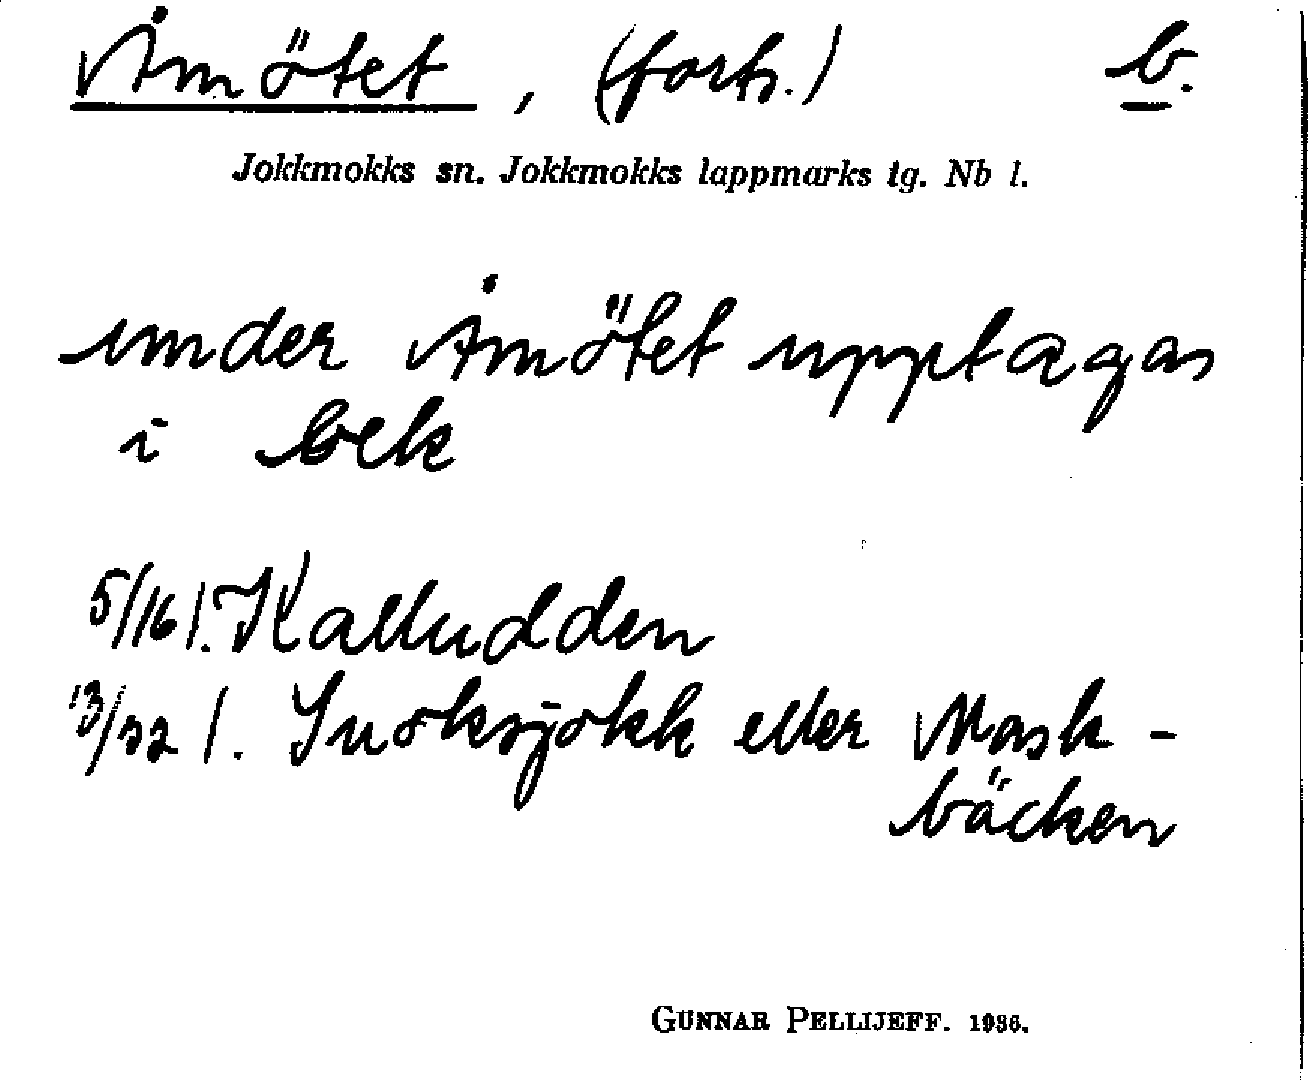 Åmötet, (forts.) b.
Jokkmokks sn. Jokkmokks lappmarks tg. Nb l.
under Åmötet upptagas
i bek
5/16 1. Kalludden
13/32 1. Suoksjokk eller Mask-
bäcken
GUNNAR PELLIJEFF. 1936.